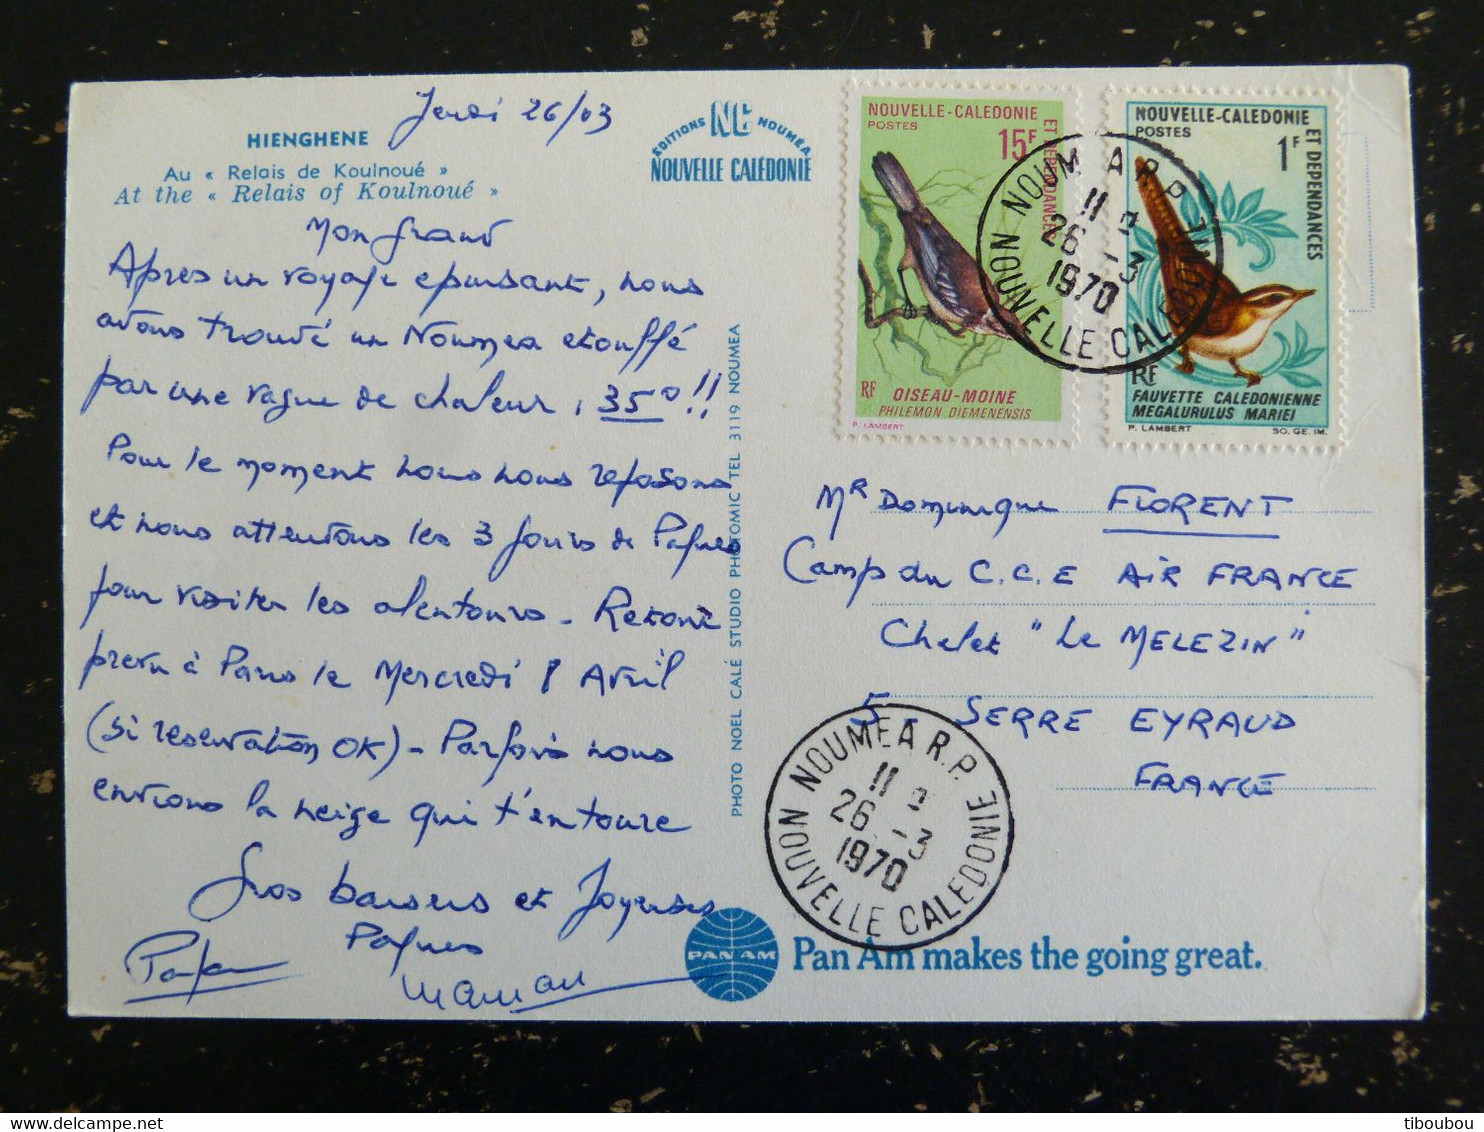 HIENGHENE
Au « Relais de Koulnoué »
At the « Relais of Koulnoué »
Jeudi 26/03
EDITIONS NC NOUMÉA
NOUVELLE CALÉDONIE
Mon Grand
Apres un voyage epuisant, nous
avons trouvé un Noumea etouffé
par une vague de chaleur, 35° !!
Pour le moment nous nous reposons
et nous attendons les 3 jours de Paques
pour visiter les alentours - Retour
prevu à Paris le Mercredi 8 Avril
(si reservation OK) - Parfois nous
envions la neige qui t'entoure
Gros baisers et Joyeuses
Paques
Papa
Maman
PHOTO NOEL CALÉ STUDIO PHOTOMIC TEL 3119 NOUMEA
NOUVELLE-CALEDONIE
ET DEPENDANCES
POSTES
15F
RF
OISEAU-MOINE
PHILEMON DIEMENENSIS
P. LAMBERT
NOUVELLE-CALEDONIE
ET DEPENDANCES
POSTES
1F
RF
FAUVETTE CALEDONIENNE
MEGALURULUS MARIEI
P. LAMBERT
SO. GE. IM.
NOUMEA R.P.
11
26 -3
1970
NOUVELLE CALEDONIE
Mr Dominique FLORENT
Camp du C.C.E AIR FRANCE
Chalet "Le MELEZIN"
5 - SERRE EYRAUD
FRANCE
NOUMEA R.P.
11
26 -3
1970
NOUVELLE CALEDONIE
PAN AM
Pan Am makes the going great.
tiboubou